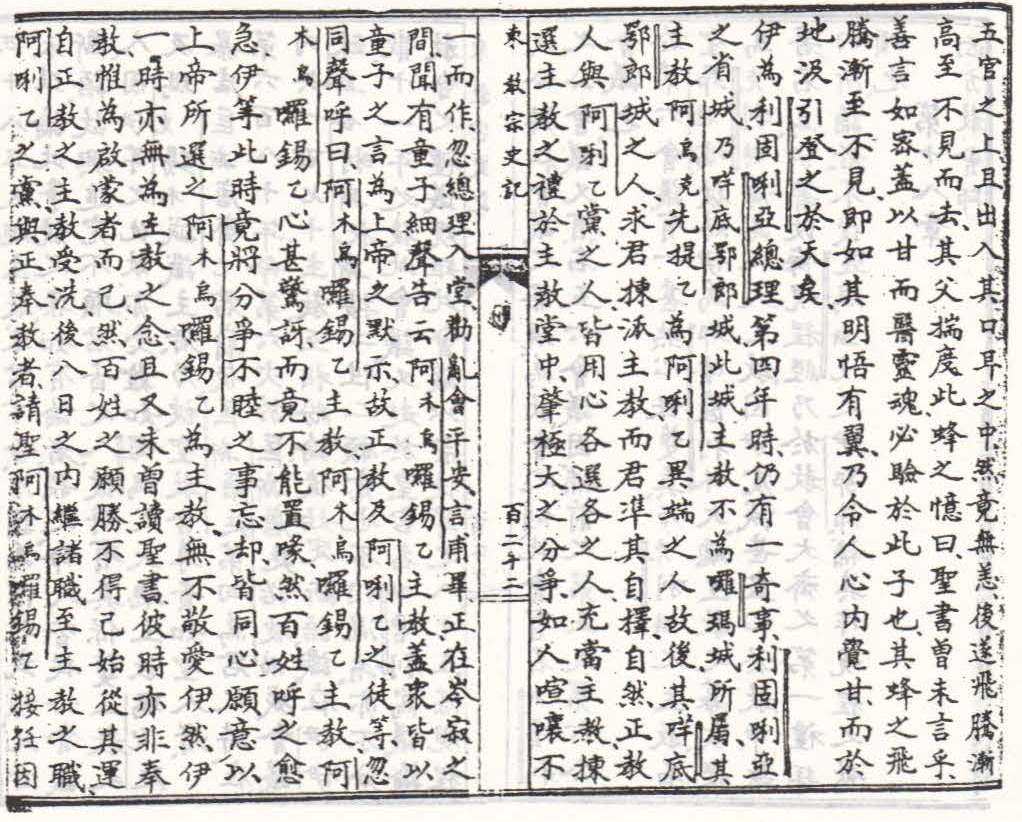 五官之上且出入其口耳之中然竟無恙後遂飛騰漸
高至不見而去其父揣度此蜂之憶曰聖書曾未言乎
善言如宻蓋以甘而醫靈魂必驗於此子也其蜂之飛
騰漸至不見即如其明悟有翼乃令人心內覺甘而於
地汲引登之於天矣
伊為利固唎亞總理第四年時仍有一奇事利固唎亞
之省城乃咩底鄂郎城此城主教不為囉瑪城所屬其
主教阿烏克先提乙為阿唎乙異端之人故後其咩底
鄂郎城之人求君揀派主教而君準其自擇自然正教
人與阿唎乙黨之人皆用心各選各之人充當主教揀
選主教之禮於主教堂中肇極大之分爭如人喧嚷不
東教宗史記
百二十二
一而作忽總理入堂勸亂會平安言甫畢正在岑寂之
間聞有童子細聲告云阿木烏囉錫乙主教蓋衆皆以
童子之言為上帝之默示故正教及阿唎乙之徒等忽
同聲呼曰阿木烏囉錫乙主教阿木烏囉錫乙主教阿
木烏囉錫乙心甚驚訝而竟不能置喙然百姓呼之愈
急伊等此時竟將分爭不睦之事忘却皆同心願意以
上帝所選之阿木烏囉錫乙為主教無不敬愛伊然伊
一時亦無為主教之念且又未曾讀聖書彼時亦非奉
教惟為啟蒙者而已然百姓之願勝不得已始從其運
自正教之主教受洗後八日之內繼諸職至主教之職
阿唎乙之黨與正奉教者請聖阿木烏囉錫乙接任因